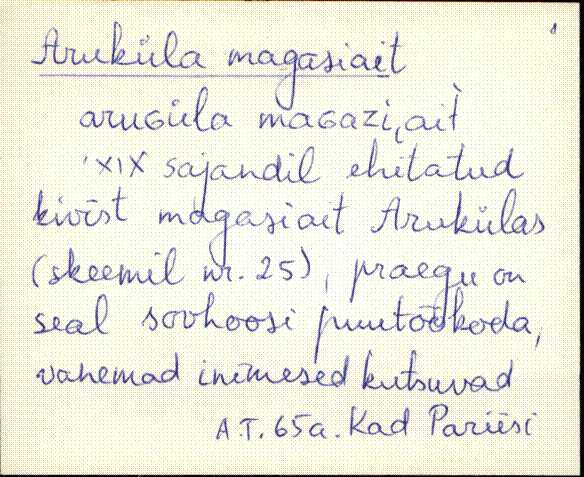 Aruküla magasiait
aruGüla maGazi,ait̀
'XIX sajandil ehitatud
kivist magasiait Arukülas
(skeemil nr. 25), praegu on
seal sovhoosi puutöökoda,
vanemad inimesed kutsuvad
A.T. 65a. Kad Pariisi